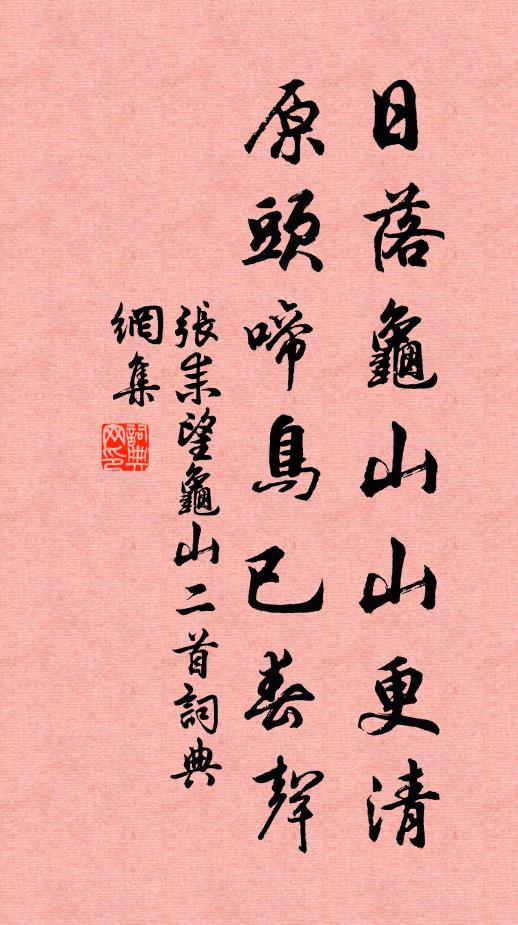 日落龜山山更清
原頭啼鳥已春聲
張耒望龜山二首詞典
網集
詞典網印